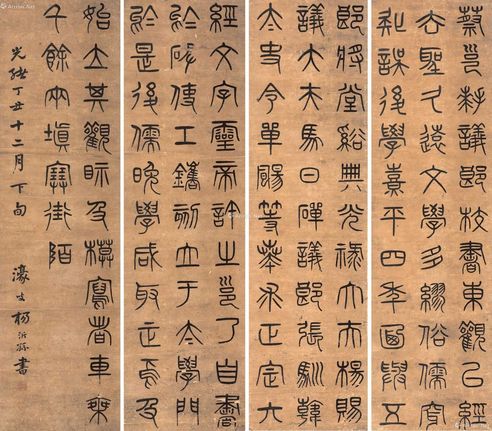 蔡邕拜議郎校書東觀以經
去聖久遠文學多繆俗儒穿
誤後學熹平四年迺與五
郎將堂谿典光祿大夫楊賜
議大夫馬日磾議郎張馴韓
太史令單颺等奏求正定六
經文字靈帝許之邕乃自書
於碑使工鐫刻立于太學門
於是後儒晚學咸取正焉及
始立其觀眡及摹寫者車乘
千餘兩填塞街陌
光緒丁丑十二月下旬 濠叟楊沂孫書